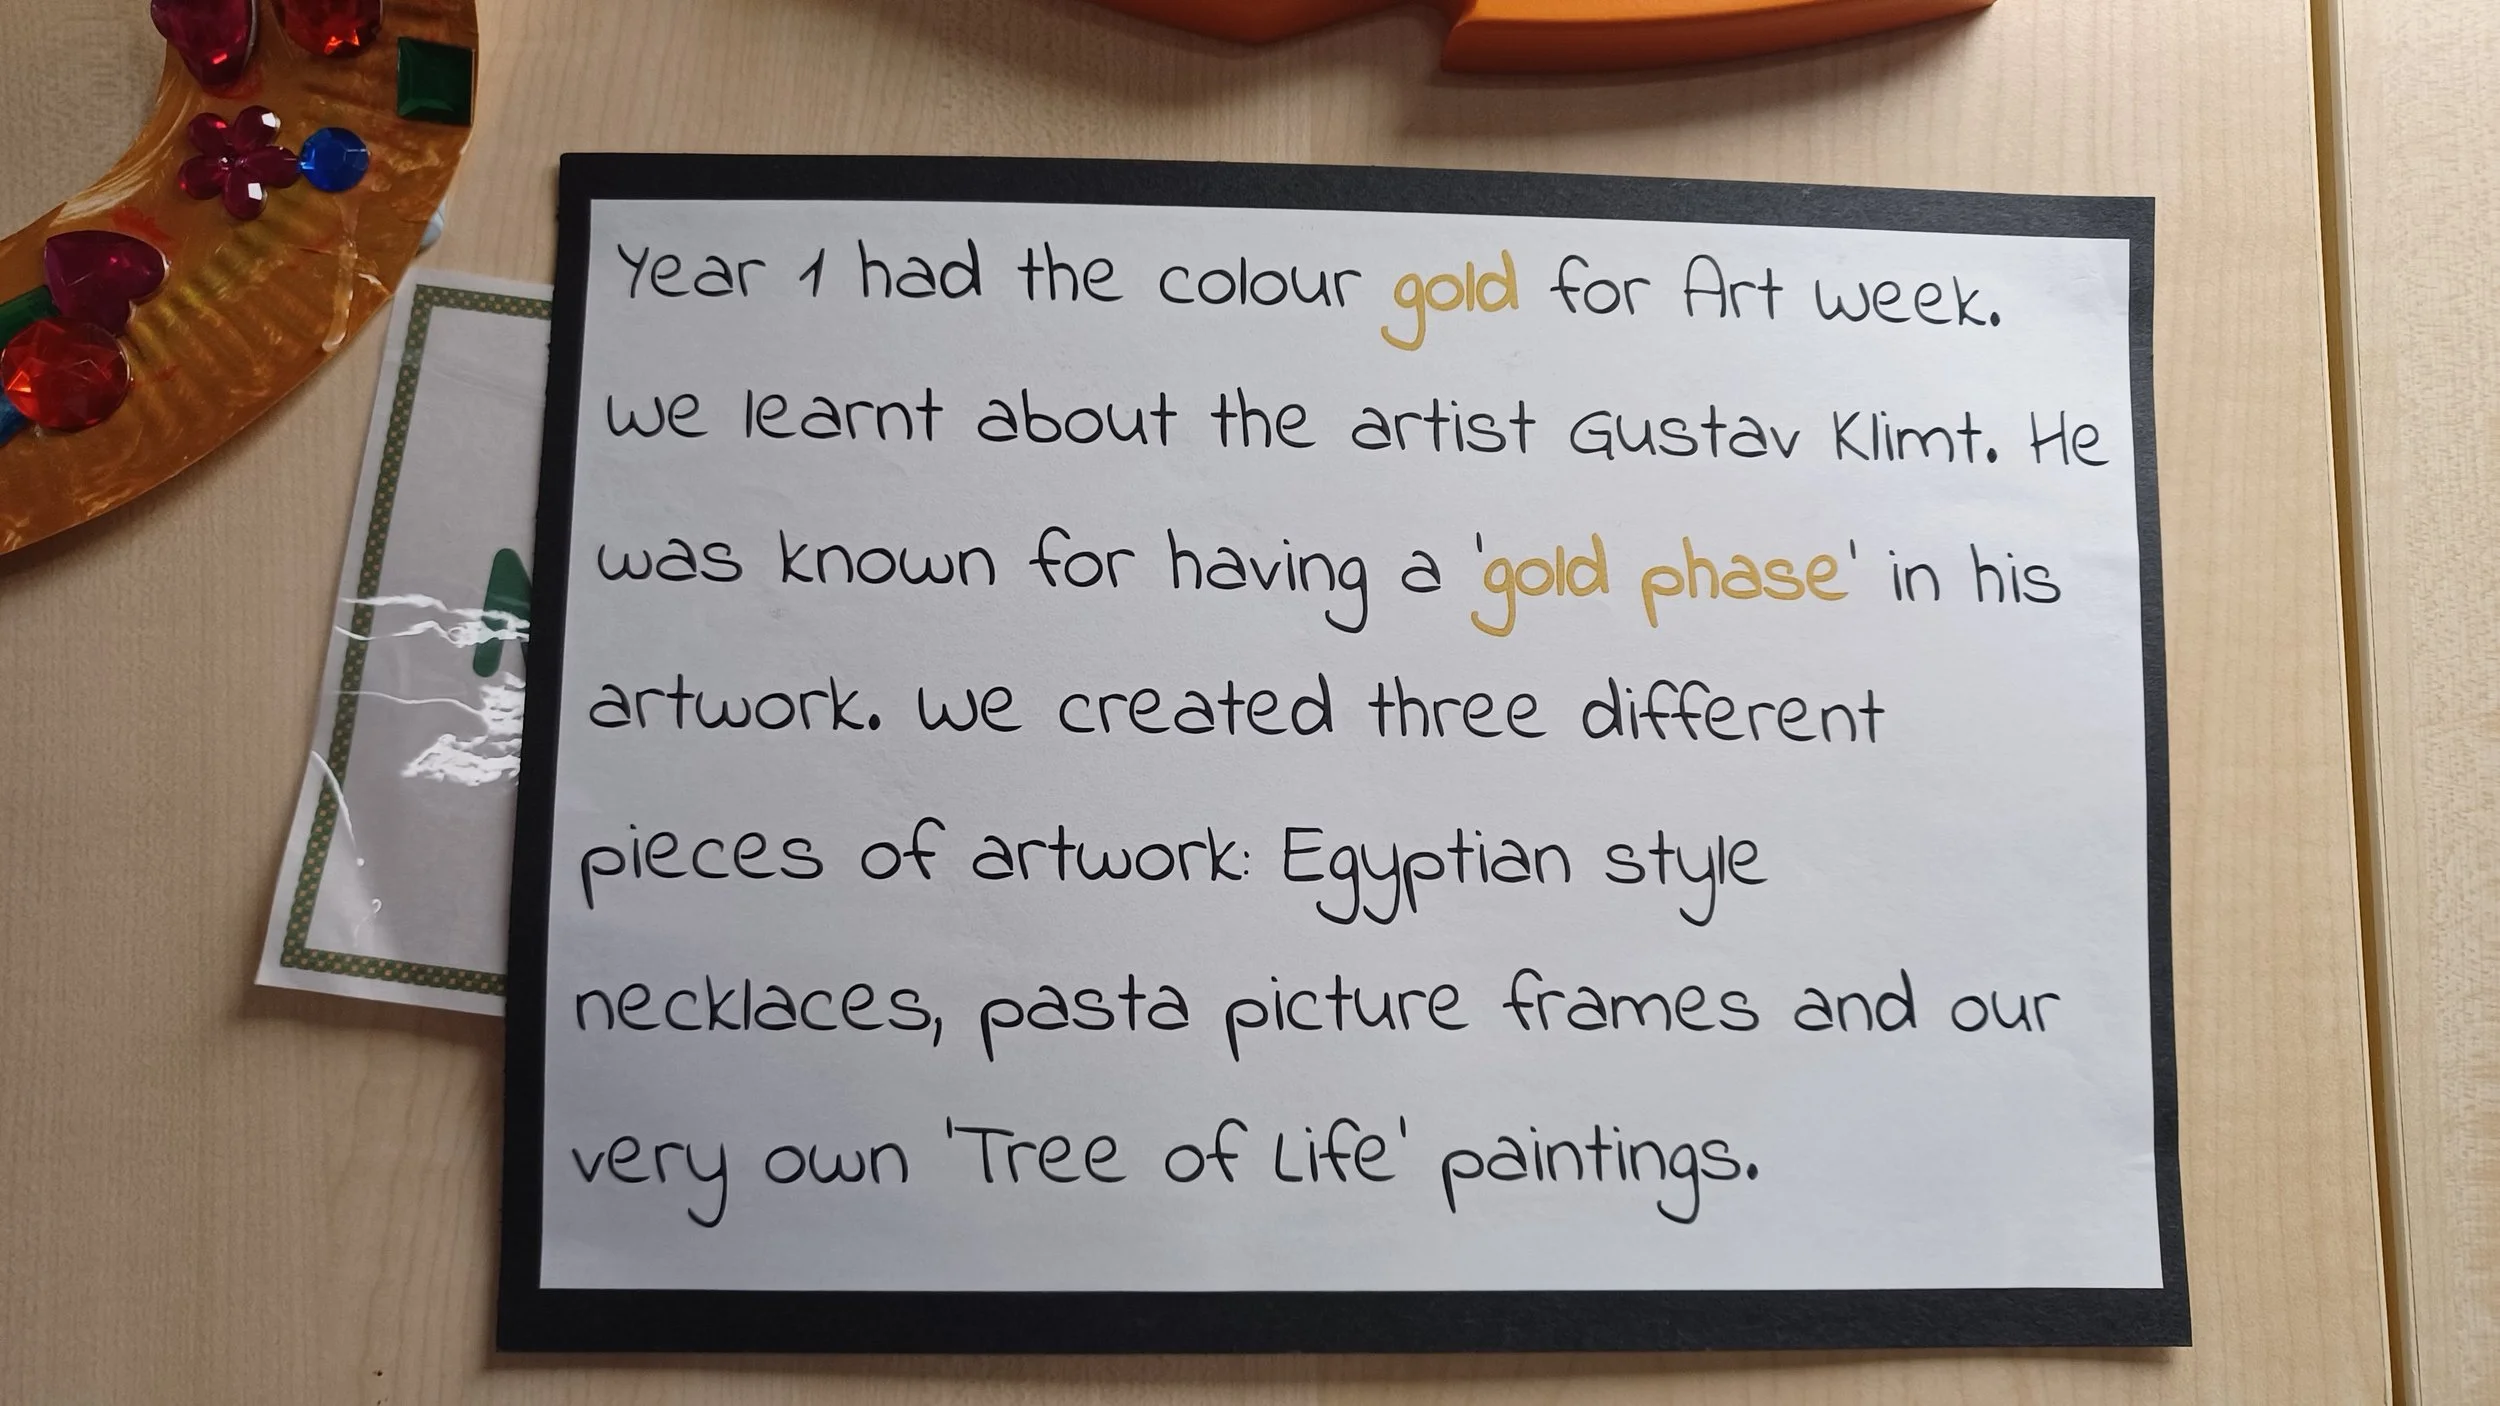 Year 1 had the colour gold for Art week.
We learnt about the artist Gustav Klimt. He
was known for having a 'gold phase' in his
artwork. We created three different
pieces of artwork: Egyptian style
necklaces, pasta picture frames and our
very own 'Tree of Life' paintings.